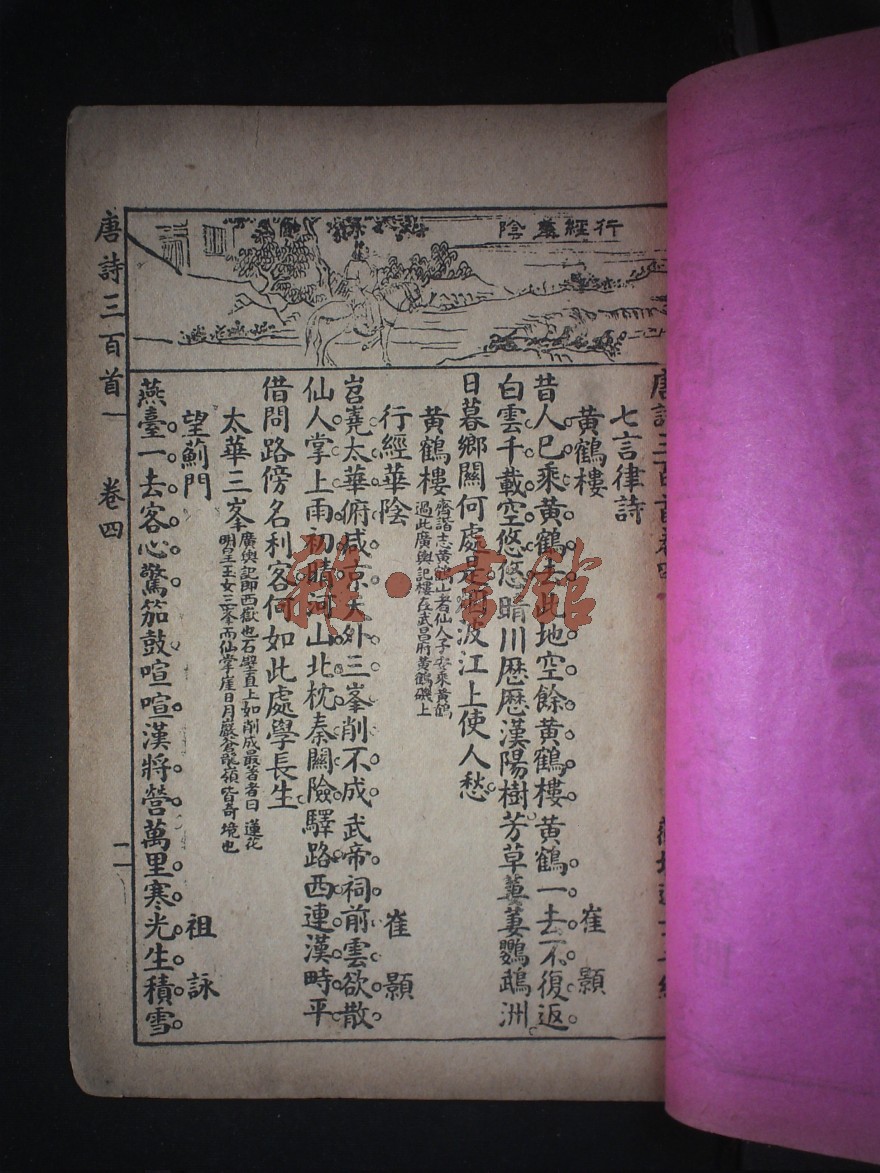 行經華陰
唐詩三百首卷四
七言律詩
黃鶴樓 崔顥
昔人已乘黃鶴去此地空餘黃鶴樓黃鶴一去不復返
白雲千載空悠悠晴川歷歷漢陽樹芳草萋萋鸚鵡洲
日暮鄉關何處是煙波江上使人愁
黃鶴樓 齊諧志黃鶴山者仙人子安乘黃鶴過此廣輿記樓在武昌府黃鶴磯上
行經華陰 崔顥
岧嶤太華俯咸京天外三峯削不成武帝祠前雲欲散
仙人掌上雨初晴河山北枕秦關險驛路西連漢畤平
借問路傍名利客何如此處學長生
太華三峯 廣輿記即西嶽也石壁直上如削成最著者曰蓮花明星玉女三峯而仙掌崖日月巖蒼龍嶺皆奇境也
望薊門 祖詠
燕臺一去客心驚笳鼓喧喧漢將營萬里寒光生積雪
唐詩三百首 卷四 二
雜·書館